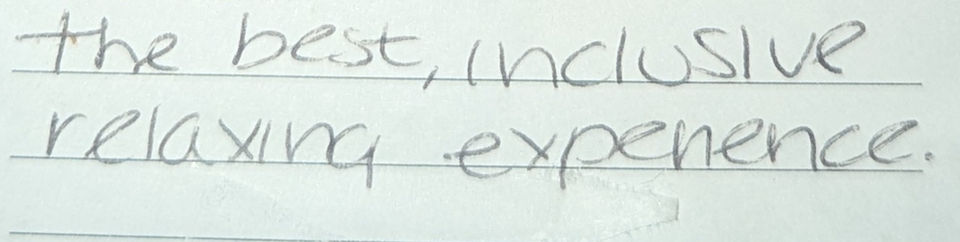 the best, inclusive
relaxing experience.